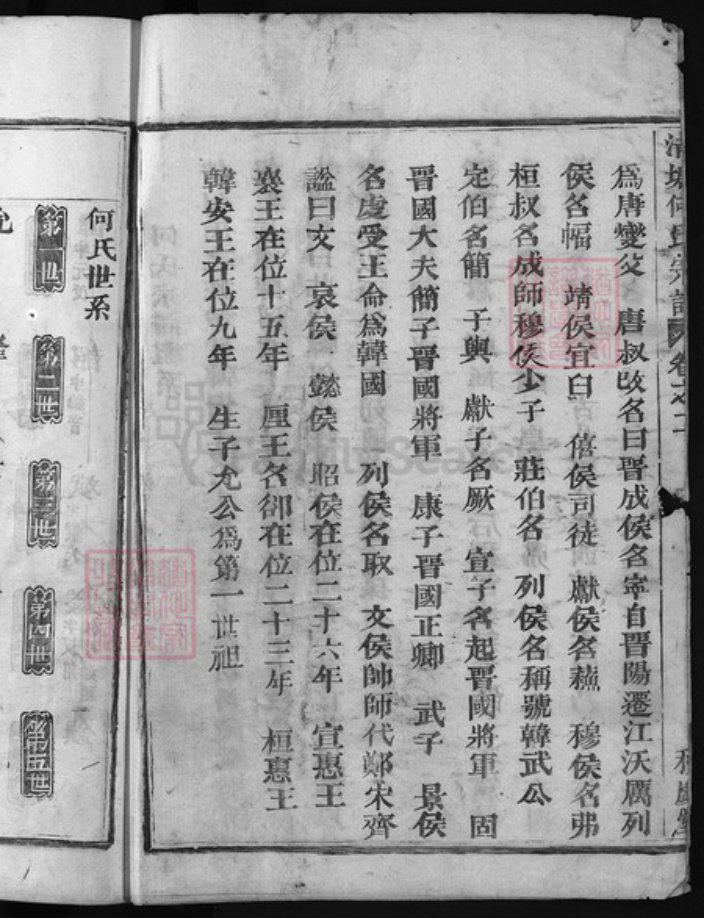 為唐燮父 唐叔改名曰晋成侯名寧自晋陽遷江沃厲列
侯名幅 靖侯宜臼 僖侯司徒 獻侯名蘓 穆侯名弗
桓叔名成師穆侯少子 莊伯名 列侯名稱號韓武公
定伯名簡 子輿 獻子名厥 宣子名起晋國將軍 固
晋國大夫簡子晋國將軍 康子晋國正卿 武子 景侯
名虔受王命為韓國 列侯名取 文侯帥師代鄭宋齊
謚曰文 哀侯 懿侯 昭侯在位二十六年 宣惠王
襄王在位十五年 厘王名卻在位二十三年 桓惠王
韓安王在位九年 生子允公為第一世祖
何氏宗譜 卷之二
何氏世系
第一世 第二世 第三世 第四世 第五世